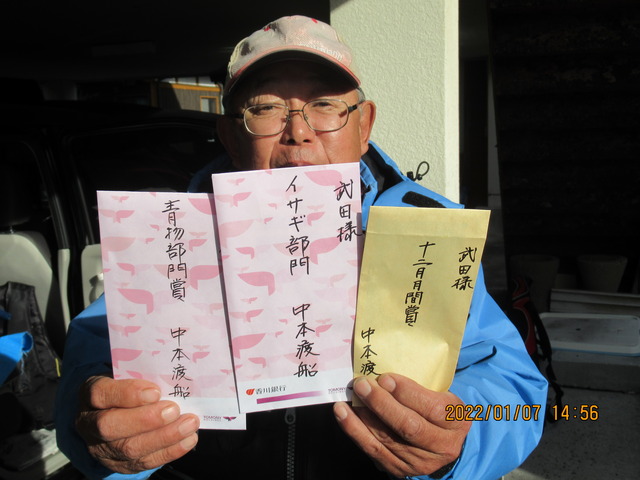 青物部門賞
中本渡船
武田様
イサギ部門
中本渡船
香川銀行
武田様
十二月月間賞
中本渡船
2022/01/07 14:56